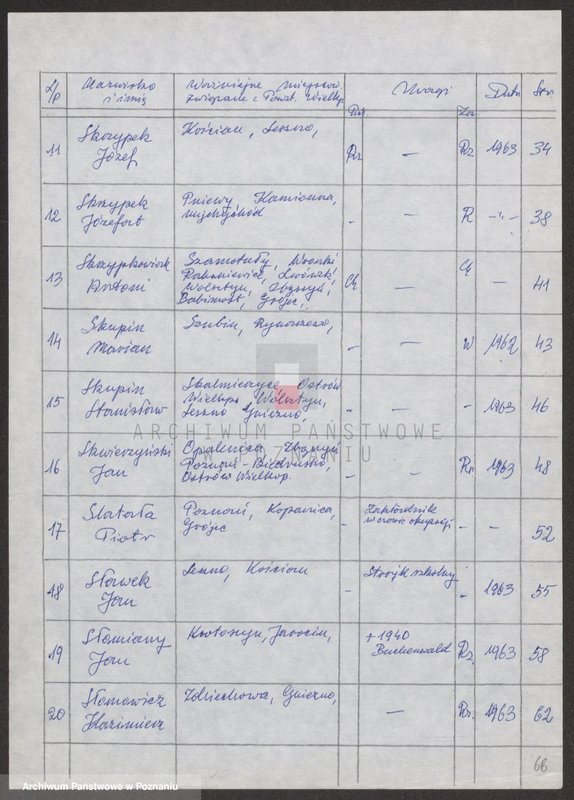 L/p Nazwisko i imię Ważniejsze miejscow. związane z Powst. Wielkp. Uwagi Data Str.
11 Skrzypek Józef Kościan, Leszno, Rz — Rz 1963 34
12 Skrzypek Józefat Pniewy, Kamionna, Międzychód - — R -"- 38
13 Skrzypkowiak Antoni Szamotuły, Wronki Rakoniewice, Lwówek, Wolsztyn, Zbąszyń, Babimost, Grójec, Cę — Cę — 41
14 Skupin Marian Szubin, Rynarzewo, - — W 1962 43
15 Skupin Stanisław Skalmierzyce, Ostrów Wielkop. Wolsztyn, Leszno Gniezno, - — - 1963 46
16 Skwierczyński Jan Opalenica Zbąszyń Poznań - Biedrusko, Ostrów Wielkop. - — Rr 1963 48
17 Slatała Piotr Poznań, Kopanica, Grójec - Zakładnik w czasie okupacji - — 52
18 Sławek Jan Leszno, Kościan - Strajk szkolny - 1963 55
19 Słomiany Jan Krotoszyn, Jarocin, + 1940 Buchenwald Rz, 1963 58
20 Słomowicz Kazimierz Zdziechowa, Gniezno, — 1963 62
66
ARCHIWUM PAŃSTWOWE
W POZNANIU
Archiwum Państwowe w Poznaniu